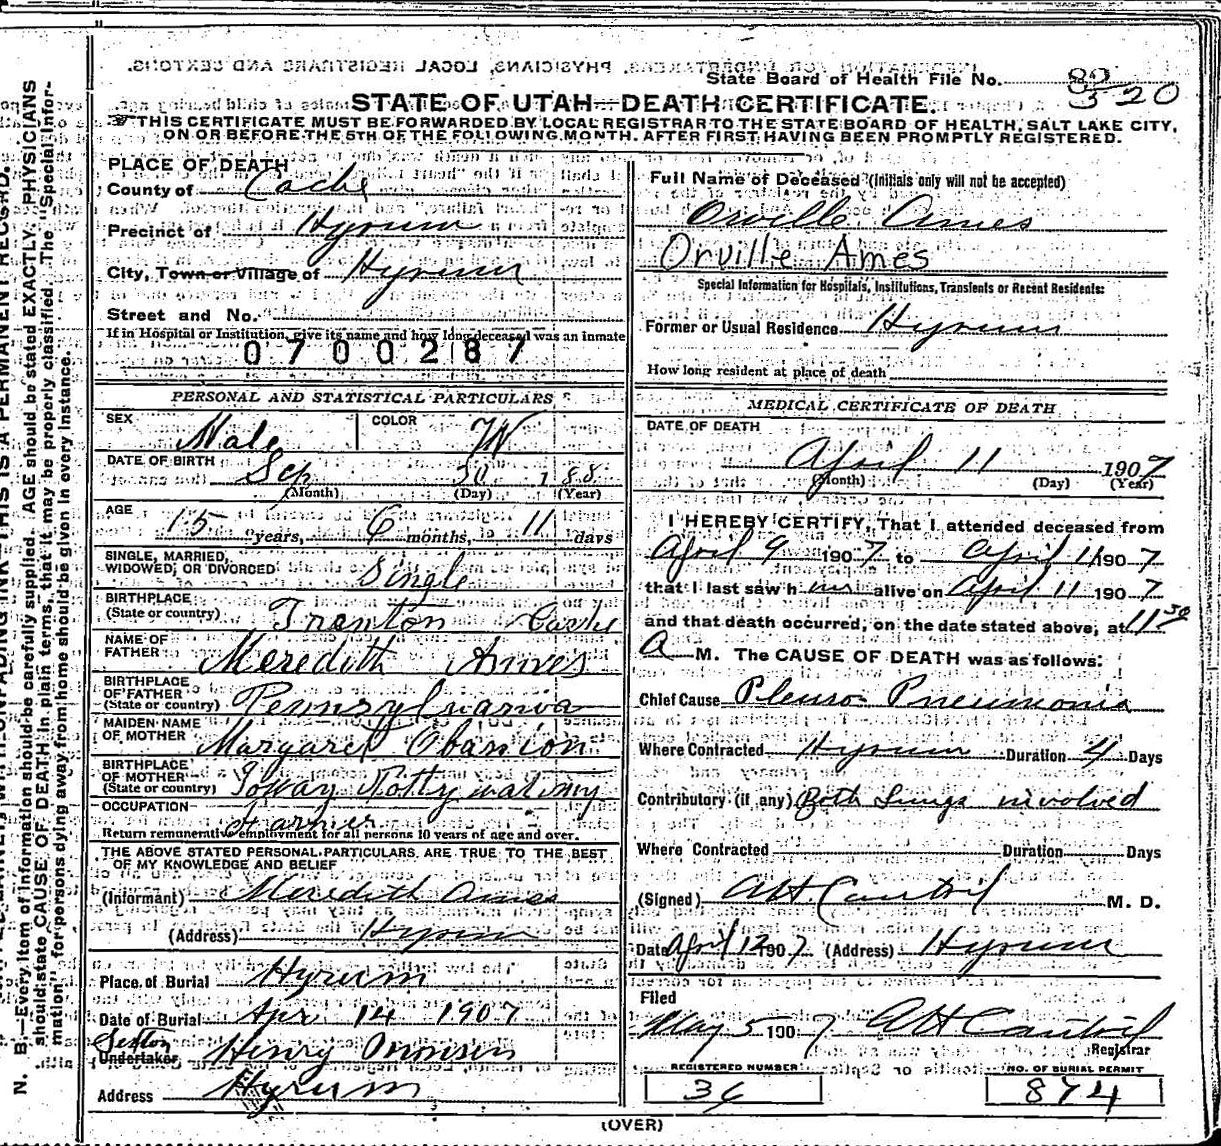 State Board of Health File No. 320
STATE OF UTAH—DEATH CERTIFICATE.
THIS CERTIFICATE MUST BE FORWARDED BY LOCAL REGISTRAR TO THE STATE BOARD OF HEALTH, SALT LAKE CITY,
ON OR BEFORE THE 5TH OF THE FOLLOWING MONTH, AFTER FIRST HAVING BEEN PROMPTLY REGISTERED.
PLACE OF DEATH
County of Cache
Precinct of Hyrum
City, Town or Village of Hyrum
Street and No.
If in Hospital or Institution, give its name and how long deceased was an inmate
0700287
PERSONAL AND STATISTICAL PARTICULARS
SEX Male COLOR W
DATE OF BIRTH Sep 30 188
(Month) (Day) (Year)
AGE 15 years, 6 months, 11 days
SINGLE, MARRIED,
WIDOWED, OR DIVORCED Single
BIRTHPLACE
(State or country) Trenton Cache
NAME OF
FATHER Meredith Ames
BIRTHPLACE
OF FATHER
(State or country) Pennsylvania
MAIDEN NAME
OF MOTHER Margaret
BIRTHPLACE
OF MOTHER
(State or country)
OCCUPATION Farmer
Return remunerative employment for all persons 10 years of age and over.
THE ABOVE STATED PERSONAL PARTICULARS ARE TRUE TO THE BEST
OF MY KNOWLEDGE AND BELIEF
(Informant) Meredith Ames
(Address) Hyrum
Place of Burial Hyrum
Date of Burial Apr 14 1907
Sexton
Undertaker Henry
Address Hyrum
Full Name of Deceased (Initials only will not be accepted)
Orville Ames
Orville Ames
Special Information for Hospitals, Institutions, Transients or Recent Residents:
Former or Usual Residence Hyrum
How long resident at place of death
MEDICAL CERTIFICATE OF DEATH
DATE OF DEATH
April 11 1907
(Month) (Day) (Year)
I HEREBY CERTIFY, That I attended deceased from
April 9 1907 to April 11 1907
that I last saw him alive on April 11 1907
and that death occurred, on the date stated above, at 11 30
A M. The CAUSE OF DEATH was as follows:
Chief Cause Pleuro Pneumonia
Where Contracted Hyrum Duration 4 Days
Contributory (if any) Both Lungs involved
Where Contracted Duration Days
(Signed) M. D.
Date April 12 1907 (Address) Hyrum
Filed
May 5 1907
Registrar
REGISTERED NUMBER
36
NO. OF BURIAL PERMIT
874
(OVER)
N. B.—Every item of information should be carefully supplied. AGE should be stated EXACTLY. PHYSICIANS
should state CAUSE OF DEATH in plain terms, that it may be properly classified. The "Special Infor-
mation" for persons dying away from home should be given in every instance.